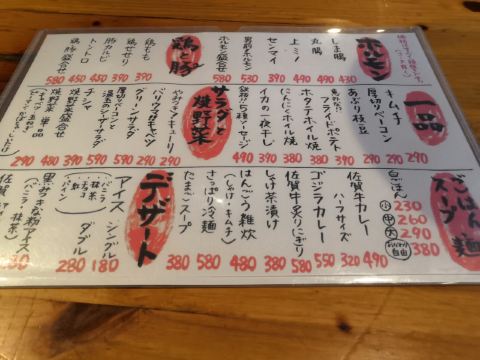 ホルモン
しま腸 430
丸腸 490
上ミノ 490
センマイ 390
男前ホルモン 530
ホルモン盛合せ 580
鶏と豚
鶏もも 390
鶏せせり 390
豚カルビ 450
トントロ 450
鶏豚盛合せ 580
一品
キムチ 290
あぶり枝豆 290
厚切りベーコン
フライドポテト
ホタテホイル焼
にんにくホイル焼
イカの一夜干し 390
鉄板!!5種ソーセージ 490
サラダと焼野菜
やみつきキューリ 290
パリウマキャベツ 290
グリーンサラダ
厚切ベーコンと温玉のシーザーサラダ
チシャ
焼野菜盛合せ 480
焼野菜 単品 290
ごはん麺スープ
白ごはん
小 230
中 260
大 290
おかわり自由 380
佐賀牛カレー 490
ハーフサイズ 320
ゴジラカレー 550
佐賀牛炙りにぎり 580
しゃけ茶漬け 380
はんごう雑炊 480
(しゃけ・キムチ)
さっぱり冷麺 580
たまごスープ 380
デザート
アイス
シングル 180
ダブル 280
バニラ
抹茶
チョコ